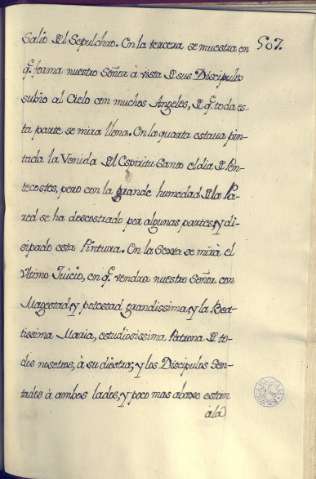 Salió del Sepulchro. En la tercera se muestra en
507.
q.e forma nuestro Señor à vista de sus Discipulos
subio al Cielo con muchos Angeles, de q.e toda es-
ta parte se mira llena. En la quarta estava pin-
tada la Venida del Espiritu Santo el dia de Pen-
tecostes, pero con la grande humedad de la Pa-
red se ha descostrado por algunas partes, y di-
sipado esta Pintura. En la Sexta se mira el
Vltimo Juicio, en q.e vendrà nuestro Señor con
Magestad, y potestad grandissima, y la Beat-
tissima Maria, estudiosissima Patrona de to-
dos nosotros, à su diestra, y los Discipulos Sen-
tados à ambos lados, y poco mas abaxo estan
à la